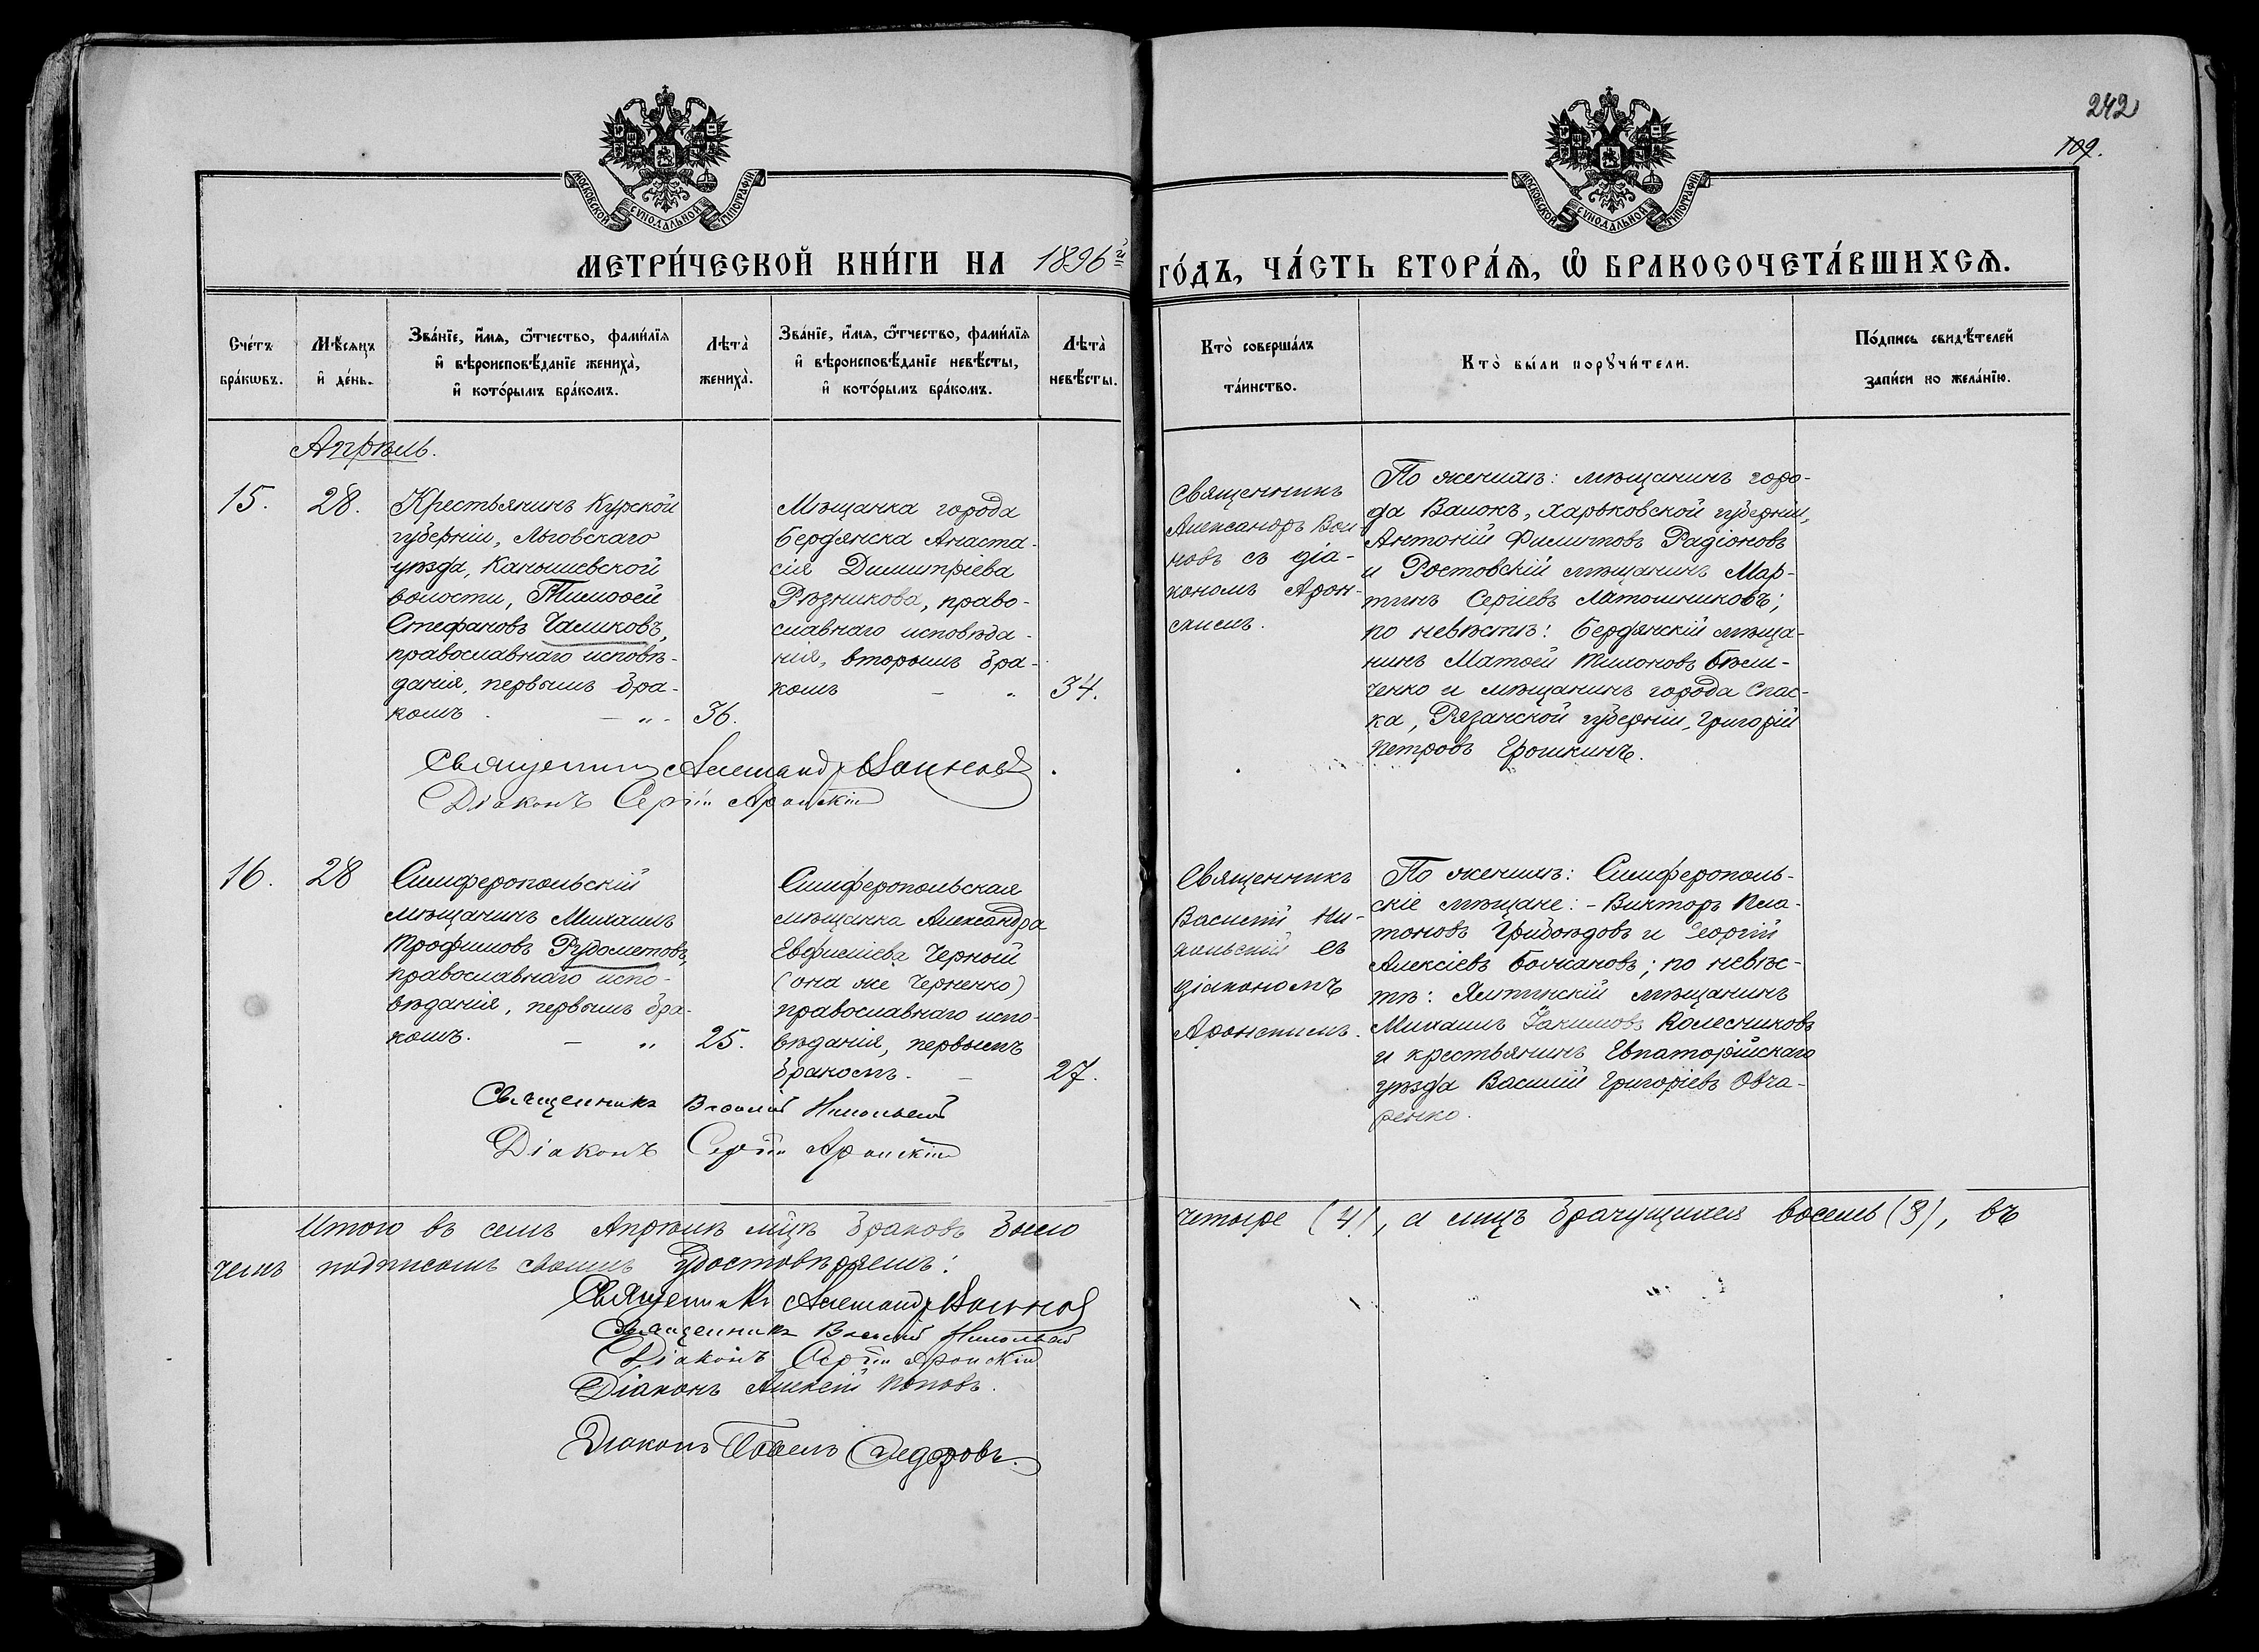 242
109.
МОСКОВСКОЙ СУНОДАЛЬНОЙ ТИПОГРАФІИ
МОСКОВСКОЙ СУНОДАЛЬНОЙ ТИПОГРАФІИ
МЕТРИ́ЧЕСКОЙ КНИ́ГИ НА 1896й
ГО́ДЪ, ЧА́СТЬ ВТОРА́Ѧ, Ѽ БРАКОСОЧЕТА́ВШИХСѦ.
Сче́тъ
бра́кѡвъ.
Мѣ́сяцъ
и҆ де́нь.
Зва́нїе, и҆́мѧ, ѻ҆́тчество, фами́лїѧ
и҆ вѣроисповѣ́данїе жениха̀,
и҆ кото́рымъ бра́комъ.
Лѣта̀
жениха̀.
Зва́нїе, и҆́мѧ, ѻ҆́тчество, фами́лїѧ
и҆ вѣроисповѣ́данїе невѣ́сты,
и҆ кото́рымъ бра́комъ.
Лѣта̀
невѣ́сты.
Кто̀ соверша́лъ
та́инство.
Кто̀ бы́ли порꙋчи́тели.
По́дпись свидѣ́телей
запи́си по жела́нїю.
Апрѣль.
15.
28.
Крестьянинъ Курской
губерніи, Льговскаго
уѣзда, Канышевской
волости, Тимоѳей
Стефановъ Чаликовъ,
православнаго исповѣ-
данія, первымъ бра-
комъ. — „ -
36.
Мѣщанка города
Бердянска Анаста-
сія Димитріева
Рѣзникова, право-
славнаго исповѣда-
нія, вторымъ бра-
комъ — „
34.
Священникъ
Александръ Вои-
новъ съ діа-
кономъ Арон-
скимъ.
По женихѣ: мѣщанинъ горо-
да Валокъ, Харьковской губерніи,
Антоній Филиповъ Радіоновъ
и Ростовскій мѣщанинъ Мар-
тинъ Сергіевъ Латошниковъ;
по невѣстѣ: Бердянскій мѣща-
нинъ Матѳей Тихоновъ Бѣли-
ченко и мѣщанинъ города Спас-
ка, Рязанской губерніи, Григорій
Петровъ Грошкинъ.
Священникъ Александръ Воиновъ
Діаконъ Сергій Аронскій
16.
28
Симферопольскій
мѣщанинъ Михаилъ
Трофимовъ Рудометовъ,
православнаго испо-
вѣданія, первымъ бра-
комъ. — „
25.
Симферопольская
мѣщанка Александра
Евфиміева Черный
(она же Черненко)
православнаго испо-
вѣданія, первымъ
бракомъ. —
27.
Священникъ
Василій Ни-
кольскій съ
діакономъ
Аронскимъ.
По женихѣ: Симферополь-
скіе мѣщане: - Викторъ Пла-
тоновъ Грибоѣдовъ и Георгій
Алексіевъ Болжановъ; по невѣс-
тѣ: Ялтинскій мѣщанинъ
Михаилъ Іакимовъ Колесниковъ
и крестьянинъ Евпаторійскаго
уѣзда Василій Григоріевъ Овча-
ренко.
Священникъ Василій Никольскій
Діаконъ Сергій Аронскій
Итого въ семъ Апрѣлѣ м҃цѣ браковъ было
четыре (4), а лицъ брачущихся восемь (8), въ
чемъ подписомъ своимъ удостовѣряемъ:
Священникъ Александръ Воиновъ
Священникъ Василій Никольскій
Діаконъ Сергій Аронскій
Діаконъ Алексій Поповъ.
Діаконъ Павелъ Ѳедоровъ.